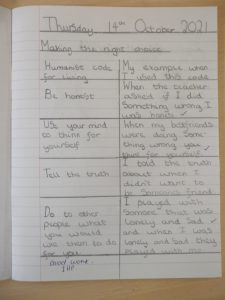 Thursday 14th October 2021
Making the right choice
Humanist code
for living
My example when
I used this code
Be honest
When the teacher
asked if I did
Something wrong I
was honist
Use your mind
to think for
yourself
When my
were doing Some-
thing wrong you
for yourself
Tell the truth
I told the truth
about when I
didn't want to
be Someone's friend
Do to other
people what
you would
like them to do
for you
I played with
Someone that was
lonely and Sad
and when I was
lonely and Sad they
played with me
Good work